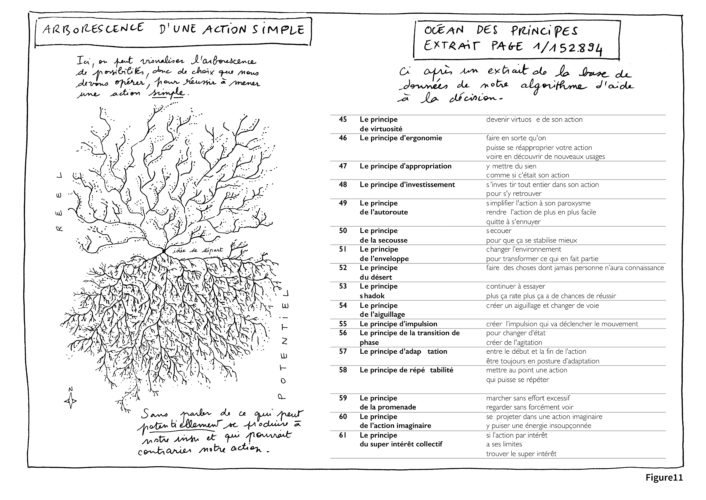 ARBORESCENCE D'UNE ACTION SIMPLE
Ici, on peut visualiser l'arborescence
de possibilités, donc de choix que nous
devons opérer, pour réussir à mener
une action simple.
REEL
idée de départ
POTENTIEL
N
Sans parler de ce qui peut
potentiellement se produire à
notre insu et qui pourrait
contrarier notre action.
OCÉAN DES PRINCIPES
EXTRAIT PAGE 1/152.894
Ci après un extrait de la base de
données de notre algorithme d'aide
à la décision.
45 Le principe devenir virtuos e de son action
de virtuosité
46 Le principe d'ergonomie faire en sorte qu'on
puisse se réapproprier votre action
voire en découvrir de nouveaux usages
47 Le principe d'appropriation y mettre du sien
comme si c'était son action
48 Le principe d'investissement s'inves tir tout entier dans son action
pour s'y retrouver
49 Le principe simplifier l'action à son paroxysme
de l'autoroute rendre l'action de plus en plus facile
quitte à s'ennuyer
50 Le principe secouer
de la secousse pour que ça se stabilise mieux
51 Le principe changer l'environnement
de l'enveloppe pour transformer ce qui en fait partie
52 Le principe faire des choses dont jamais personne n'aura connaissance
du désert
53 Le principe continuer à essayer
shadok plus ça rate plus ça a de chances de réussir
54 Le principe créer un aiguillage et changer de voie
de l'aiguillage
55 Le principe d'impulsion créer l'impulsion qui va déclencher le mouvement
56 Le principe de la transition de pour changer d'état
phase créer de l'agitation
57 Le principe d'adap tation entre le début et la fin de l'action
être toujours en posture d'adaptation
58 Le principe de répé tabilité mettre au point une action
qui puisse se répéter
59 Le principe marcher sans effort excessif
de la promenade regarder sans forcément voir
60 Le principe se projeter dans une action imaginaire
de l'action imaginaire y puiser une énergie insoupçonnée
61 Le principe si l'action par intérêt
du super intérêt collectif a ses limites
trouver le super intérêt
Figure11